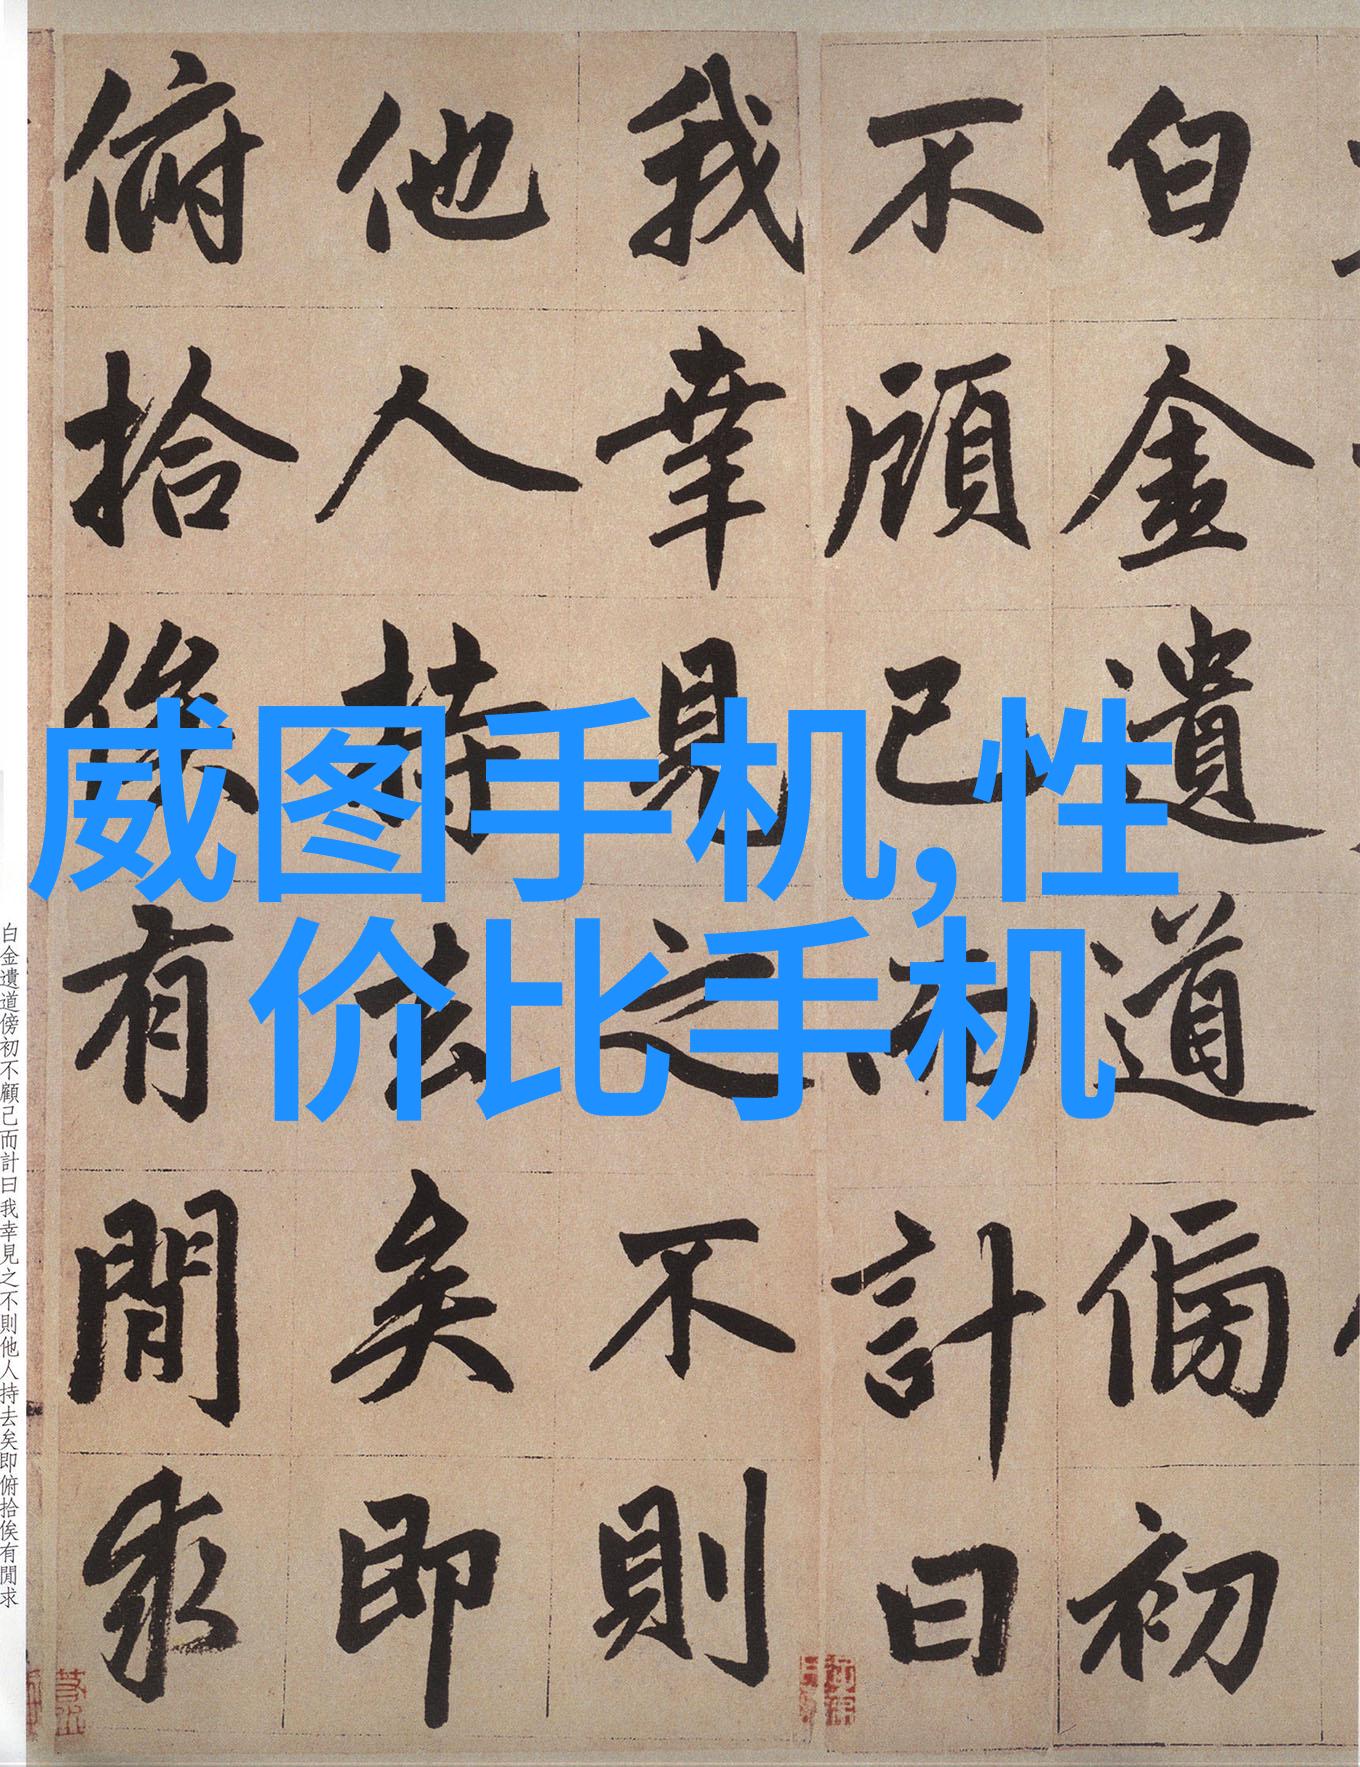 白金遺道傍初
不顧己而計曰
我幸見之不則
他人持去矣即
俯拾俟有閒求
威图手机,性
价比手机
白金遺道傍初不顧己而計曰我幸見之不則他人持去矣即俯拾俟有閒求